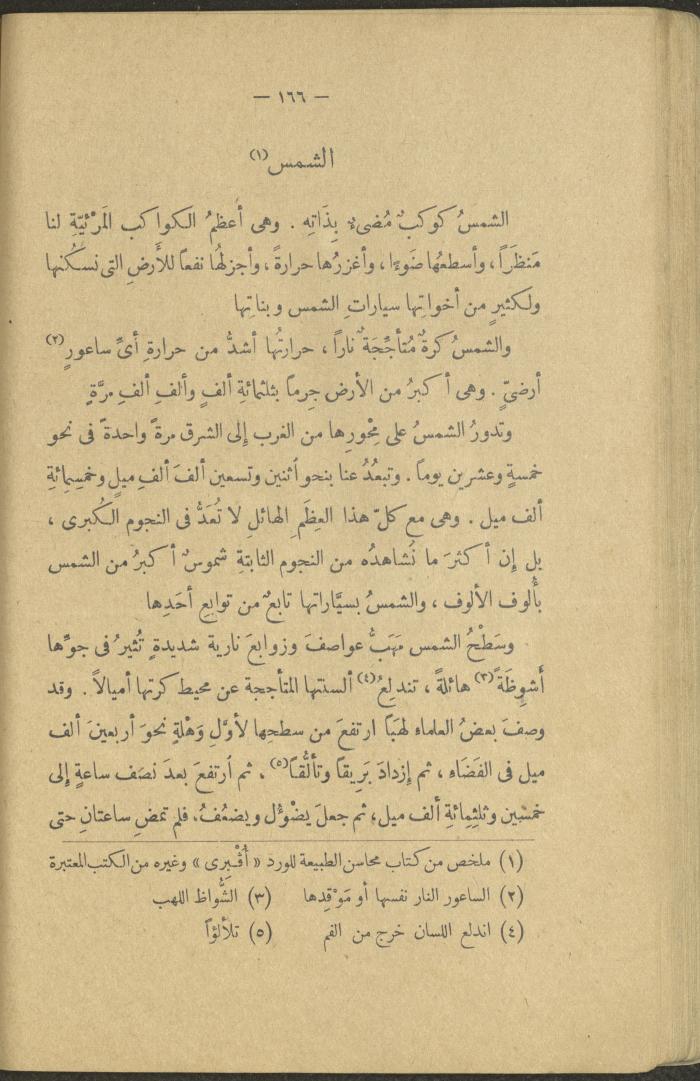 — ١٦٦ —
الشمس (١)
الشمسُ كوكبٌ مُضىءٌ بِذَاتِه . وهى أَعظمُ الكواكب المَرْئيَّةِ لنا
مَنظَرًا ، وأسطعُها ضَوءًا ، وأغزرُها حرارةً ، وأجزلُها نفعًا للأَرضِ التى نسكُنها
ولكثيرٍ من أخواتِها سياراتِ الشمس وبناتِها
والشمسُ كرةٌ مُتأجِّجَةٌ نارًا ، حرارتُها أشدُّ من حرارةِ أىِّ ساعورٍ (٢)
أرضىٍّ . وهى أكبرُ من الأرض جِرمًا بثلثمائةِ ألفٍ وألفِ ألفِ مرَّةٍ
وتدورُ الشمسُ على مِحْورِها من الغرب إلى الشرق مرةً واحدةً فى نحو
خمسةٍ وعشرين يومًا . وتبعُدُ عنا بنحو أثنين وتسعين ألفَ ألفِ ميلٍ وخمسِمِائةِ
ألف ميل . وهى مع كلّ هذا العِظَمِ الهائلِ لا تُعَدُّ فى النجوم الكُبرى ،
بل إن أكثرَ ما نُشاهدُه من النجوم الثابتةِ شموسٌ أكبرُ من الشمس
بأُلوف الألوف ، والشمسُ بسيَّاراتها تابعٌ من توابعِ أحَدِها
وسَطْحُ الشمس مَهَبُّ عواصفَ وزوابعَ نارية شديدةٍ تُثيرُ فى جوِّها
أَشوِظَةً (٣) هائلةً ، تندلِعُ (٤) ألسنتها المتأججة عن محيط كرتها أميالاً . وقد
وصفَ بعضُ العلماءِ لهَبًا ارتفعَ من سطحِها لأوَّلِ وَهْلةٍ نحوَ أربعينَ ألف
ميل فى الفَضَاءِ ، ثم إزدادَ بَرِيقًا وتأَلُّقًا (٥) ، ثم اُرتفعَ بعدَ نصَف ساعةٍ إلى
خمسين وثلثِمِائةِ ألف ميل، ثم جعلَ يضْوُل ويضعُفُ، فلم تمضِ ساعتانِ حتى
(١) ملخص من كتاب محاسن الطبيعة للورد « أَفْبِرى » وغيره من الكتب المعتبرة
(٢) الساعور النار نفسها أو مَوْقِدها (٣) الشُّواظ اللهب
(٤) اندلع اللسان خرج من الفم (٥) تلألؤًا